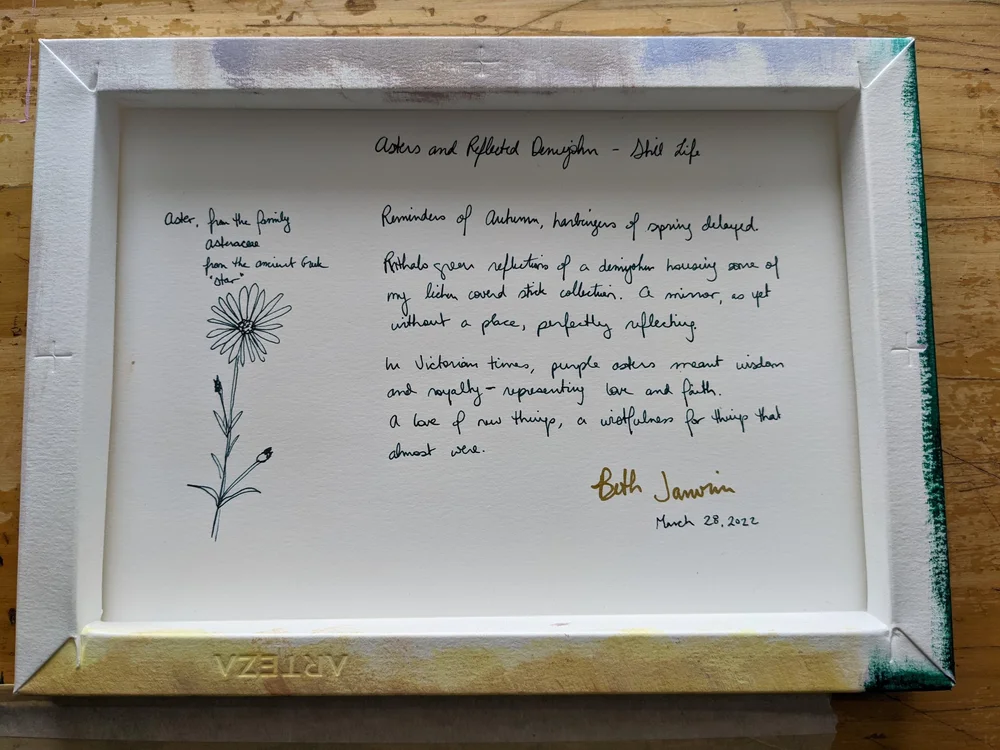 Asters and Reflected Demijohn - Still Life
Aster, from the family
asteraceae
from the ancient Greek
"star"
Reminders of Autumn, harbingers of spring delayed
green reflections of a demijohn housing some of
my lichen coverd stick collection. A mirror, as yet
without a place, perfectly reflecting.
In Victorian times, purple asters meant wisdom
and royalty - representing love and faith.
A love of new things, a wistfulness for things that
almost were.
Beth
March 28, 2022
ARTEZA